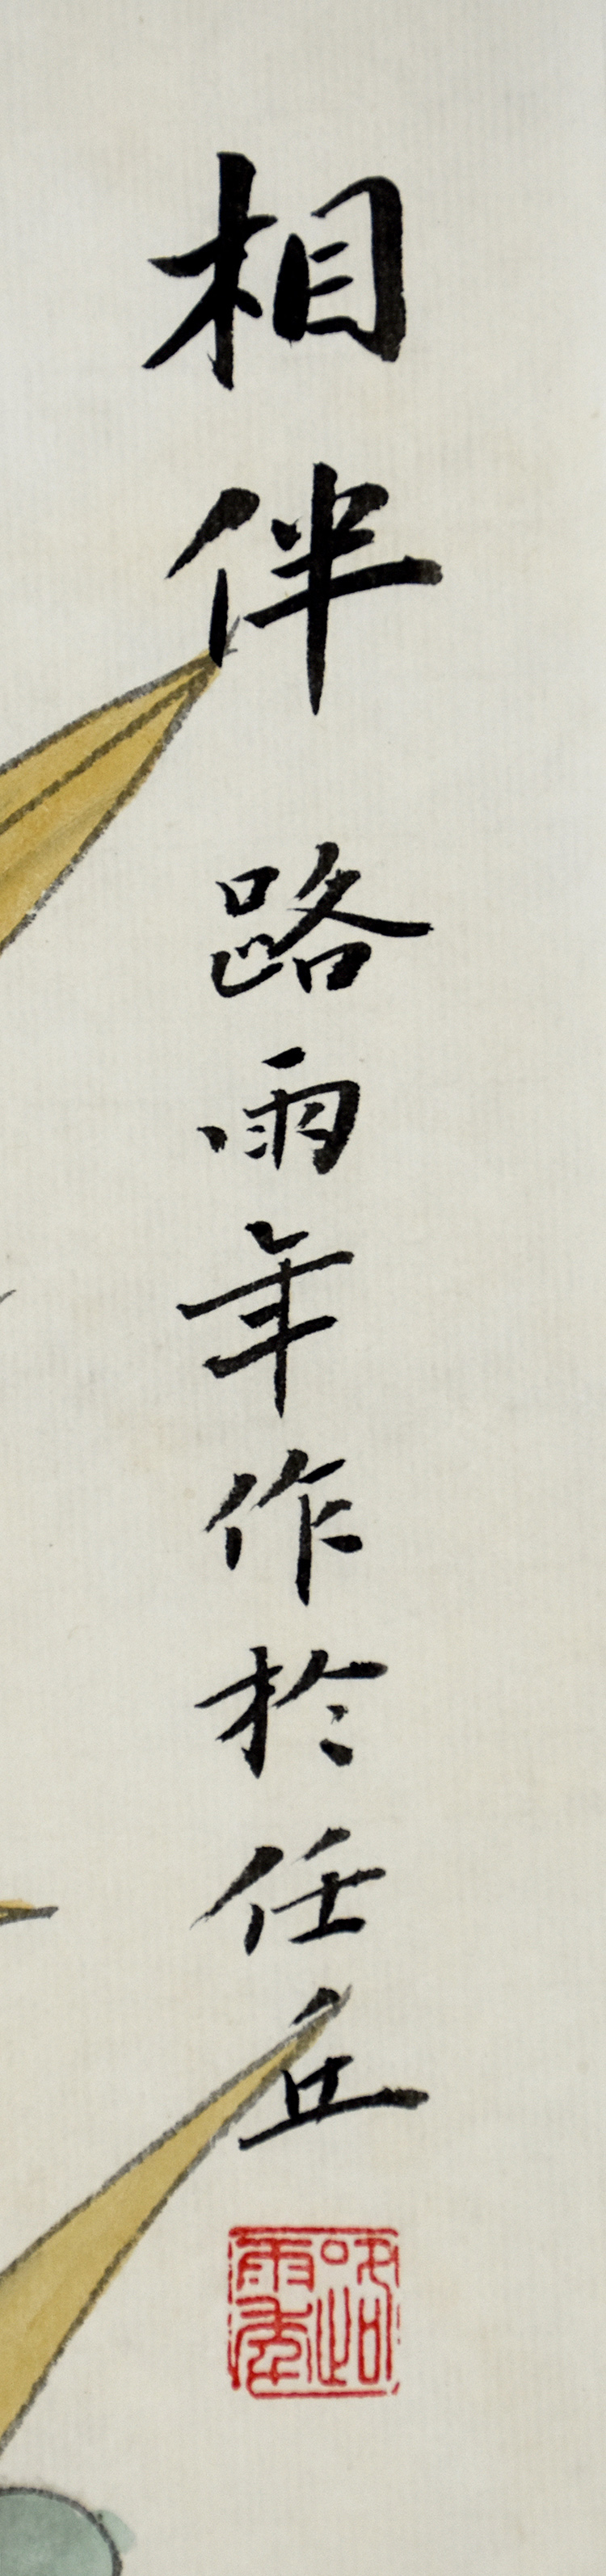 相伴 路雨年作於任丘
路雨年